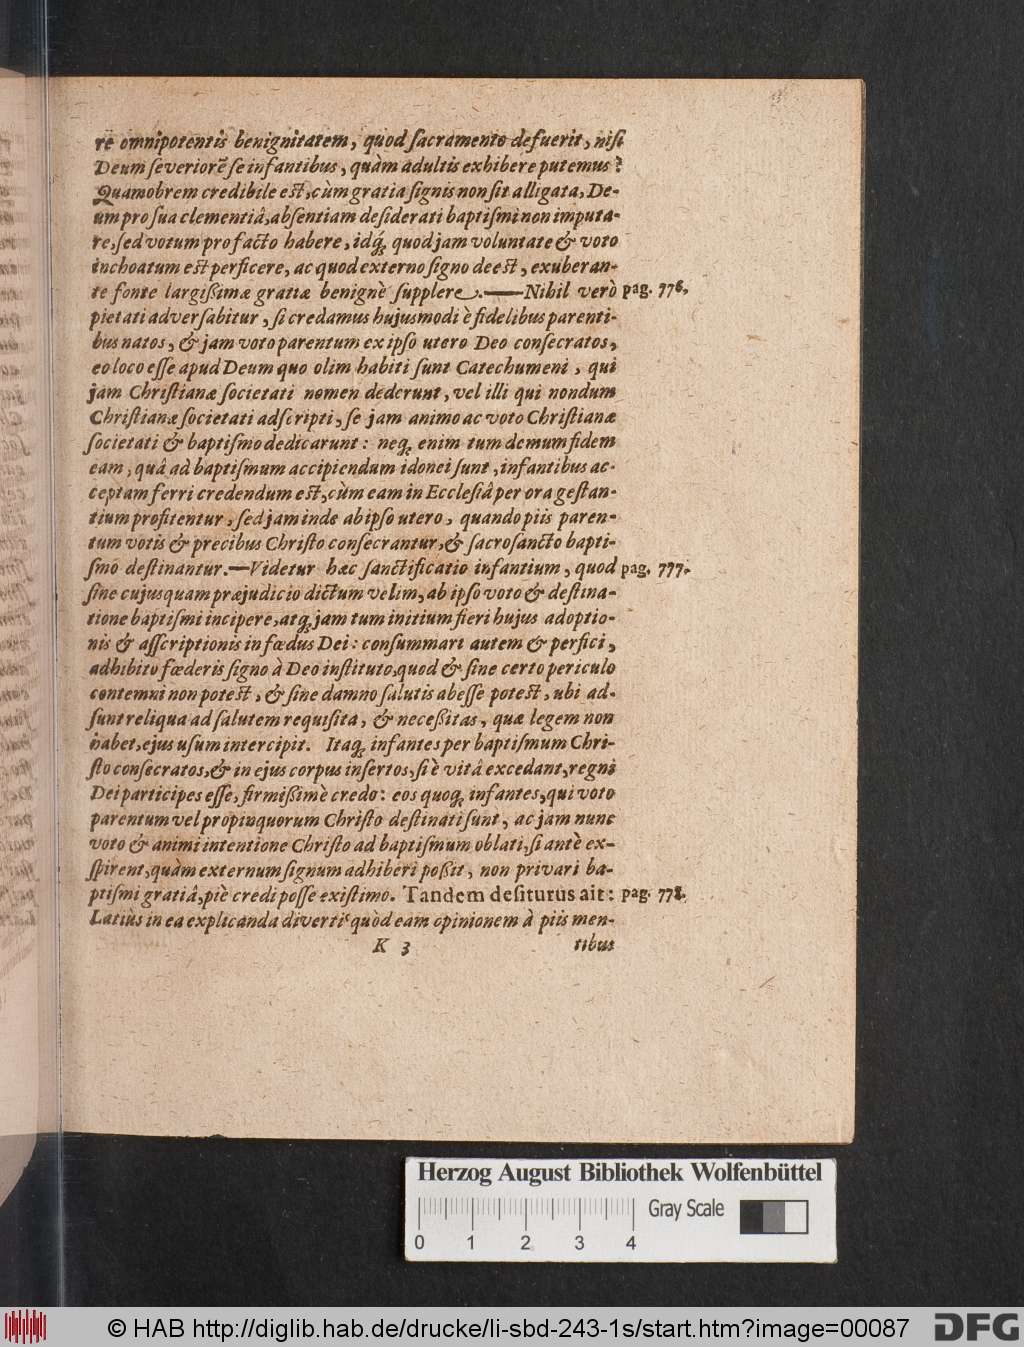 re omnipotentis benignitatem, quod ſacramento defuerit, niſi
Deum ſeveriorẽ ſe infantibus, quàm adultis exhibere putemus?
Quamobrem credibile eſt, cùm gratia ſignis non ſit alligata, De-
um pro ſua clementiâ, abſentiam deſiderati baptiſmi non imputa-
re, ſed votum pro facto habere, idq́; quod jam voluntate & voto
inchoatum eſt perficere, ac quod externo ſigno deeſt, exuberan-
te fonte largißimæ gratiæ benignè ſupplere.—Nihil verò pag. 776.
pietati adverſabitur, ſi credamus hujusmodi è fidelibus parenti-
bus natos, & jam voto parentum ex ipſo utero Deo conſecratos,
eo loco eſſe apud Deum quo olim habiti ſunt Catechumeni, qui
jam Chriſtianæ ſocietati nomen dederunt, vel illi qui nondum
Chriſtianæ ſocietati adſcripti, ſe jam animo ac voto Chriſtianæ
ſocietati & baptiſmo dedicarunt: neq; enim tum demum fidem
eam, quâ ad baptiſmum accipiendum idonei ſunt, infantibus ac-
ceptam ferri credendum eſt, cùm eam in Eccleſiâ per ora geſtan-
tium profitentur, ſed jam inde ab ipſo utero, quando piis paren-
tum votis & precibus Chriſto conſecrantur, & ſacroſancto bapti-
ſmo deſtinantur.—Videtur hæc ſanctificatio infantium, quod pag. 777.
ſine cujusquam præjudicio dictum velim, ab ipſo voto & deſtina-
tione baptiſmi incipere, atq; jam tum initium fieri hujus adoptio-
nis & aſſcriptionis in fœdus Dei: conſummari autem & perfici,
adhibito fœderis ſigno à Deo inſtituto, quod & ſine certo periculo
contemni non poteſt, & ſine damno ſalutis abeſſe poteſt, ubi ad-
ſunt reliqua ad ſalutem requiſita, & neceßitas, quæ legem non
habet, ejus uſum intercipit. Itaq; infantes per baptiſmum Chri-
ſto conſecratos, & in ejus corpus inſertos, ſi è vitâ excedant, regni
Dei participes eſſe, firmißimè credo: eos quoq; infantes, qui voto
parentum vel propinquorum Chriſto deſtinati ſunt, ac jam nunc
voto & animi intentione Chriſto ad baptiſmum oblati, ſi antè ex-
ſpirent, quàm externum ſignum adhiberi poßit, non privari ba-
ptiſmi gratiâ, piè credi poſſe exiſtimo. Tandem deſiturus ait: pag. 778.
Latiùs in ea explicanda diverti quòd eam opinionem à piis men-
K 3 tibus
Herzog August Bibliothek Wolfenbüttel
Gray Scale
0 1 2 3 4
© HAB http://diglib.hab.de/drucke/li-sbd-243-1s/start.htm?image=00087
DFG